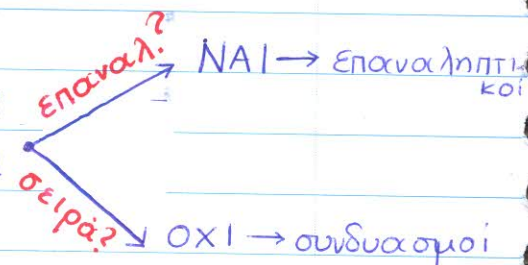 επαναλ.?
ΝΑΙ → επαναληπτι
κοί
σειρά?
ΟΧΙ → συνδυασμοί